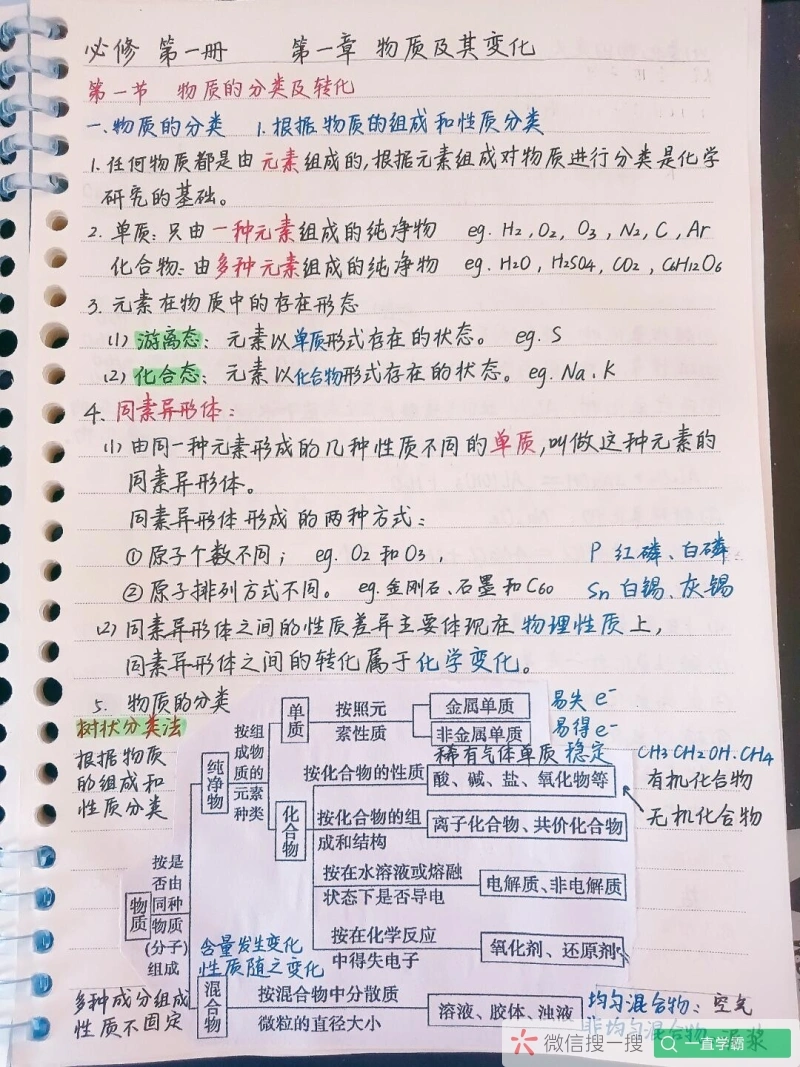 必修 第一册 第一章 物质及其变化
第一节 物质的分类及转化
一.物质的分类 1.根据物质的组成和性质分类
1.任何物质都是由元素组成的,根据元素组成对物质进行分类是化学
研究的基础。
2.单质:只由一种元素组成的纯净物 eg. H2,O2, O3,N2,C,Ar
化合物:由多种元素组成的纯净物 eg. H2O,H2SO4,CO2,C6H12O6
3.元素在物质中的存在形态
(1)游离态:元素以单质形式存在的状态。 eg. S
(2)化合态:元素以化合物形式存在的状态。eg. Na、K
4.同素异形体:
(1)由同一种元素形成的几种性质不同的单质,叫做这种元素的
同素异形体。
同素异形体形成的两种方式:
①原子个数不同; eg. O2和O3, P 红磷、白磷
②原子排列方式不同。 eg.金刚石、石墨和C60 Sn 白锡、灰锡
(2)同素异形体之间的性质差异主要体现在物理性质上,
同素异形体之间的转化属于化学变化。
5. 物质的分类
树状分类法
根据物质
的组成和
性质分类
物质
按是
否由
同种
物质
(分子)
组成
纯净物
按组
成物
质的
元素
种类
单质
按照元
素性质
金属单质 易失e-
非金属单质 易得e-
稀有气体单质 稳定
化合物
按化合物的性质
酸、碱、盐、氧化物等
CH3CH2OH.CH4
有机化合物
无机化合物
按化合物的组
成和结构
离子化合物、共价化合物
按在水溶液或熔融
状态下是否导电
电解质、非电解质
按在化学反应
中得失电子
氧化剂、还原剂
含量发生变化
性质随之变化
混合物
按混合物中分散质
微粒的直径大小
溶液、胶体、浊液
多种成分组成
性质不固定
均匀混合物:空气
非均匀混合物 泥浆
微信搜一搜
一直学霸